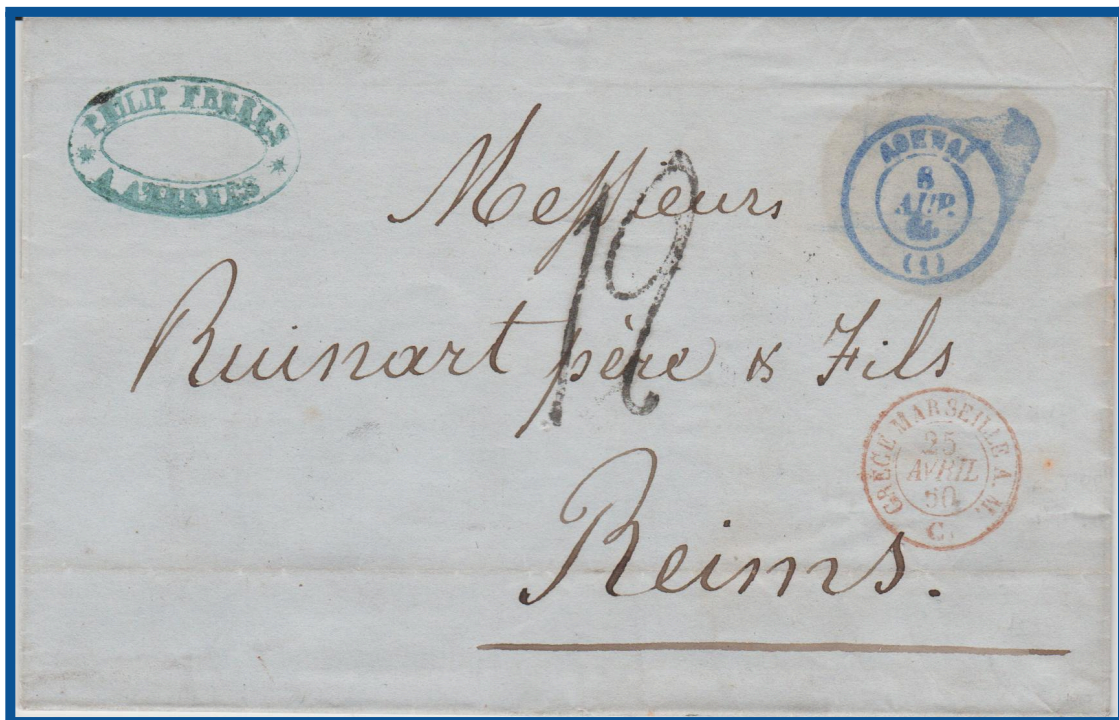 PHILIP FRERES
A. ATHENES
ΑΘΗΝΑΙ
8
ΑΠΡ.
(1)
Messieurs
12
Ruinart père & Fils
GRECE MARSEILLE A. M.
25
AVRIL
60
C.
Reims.